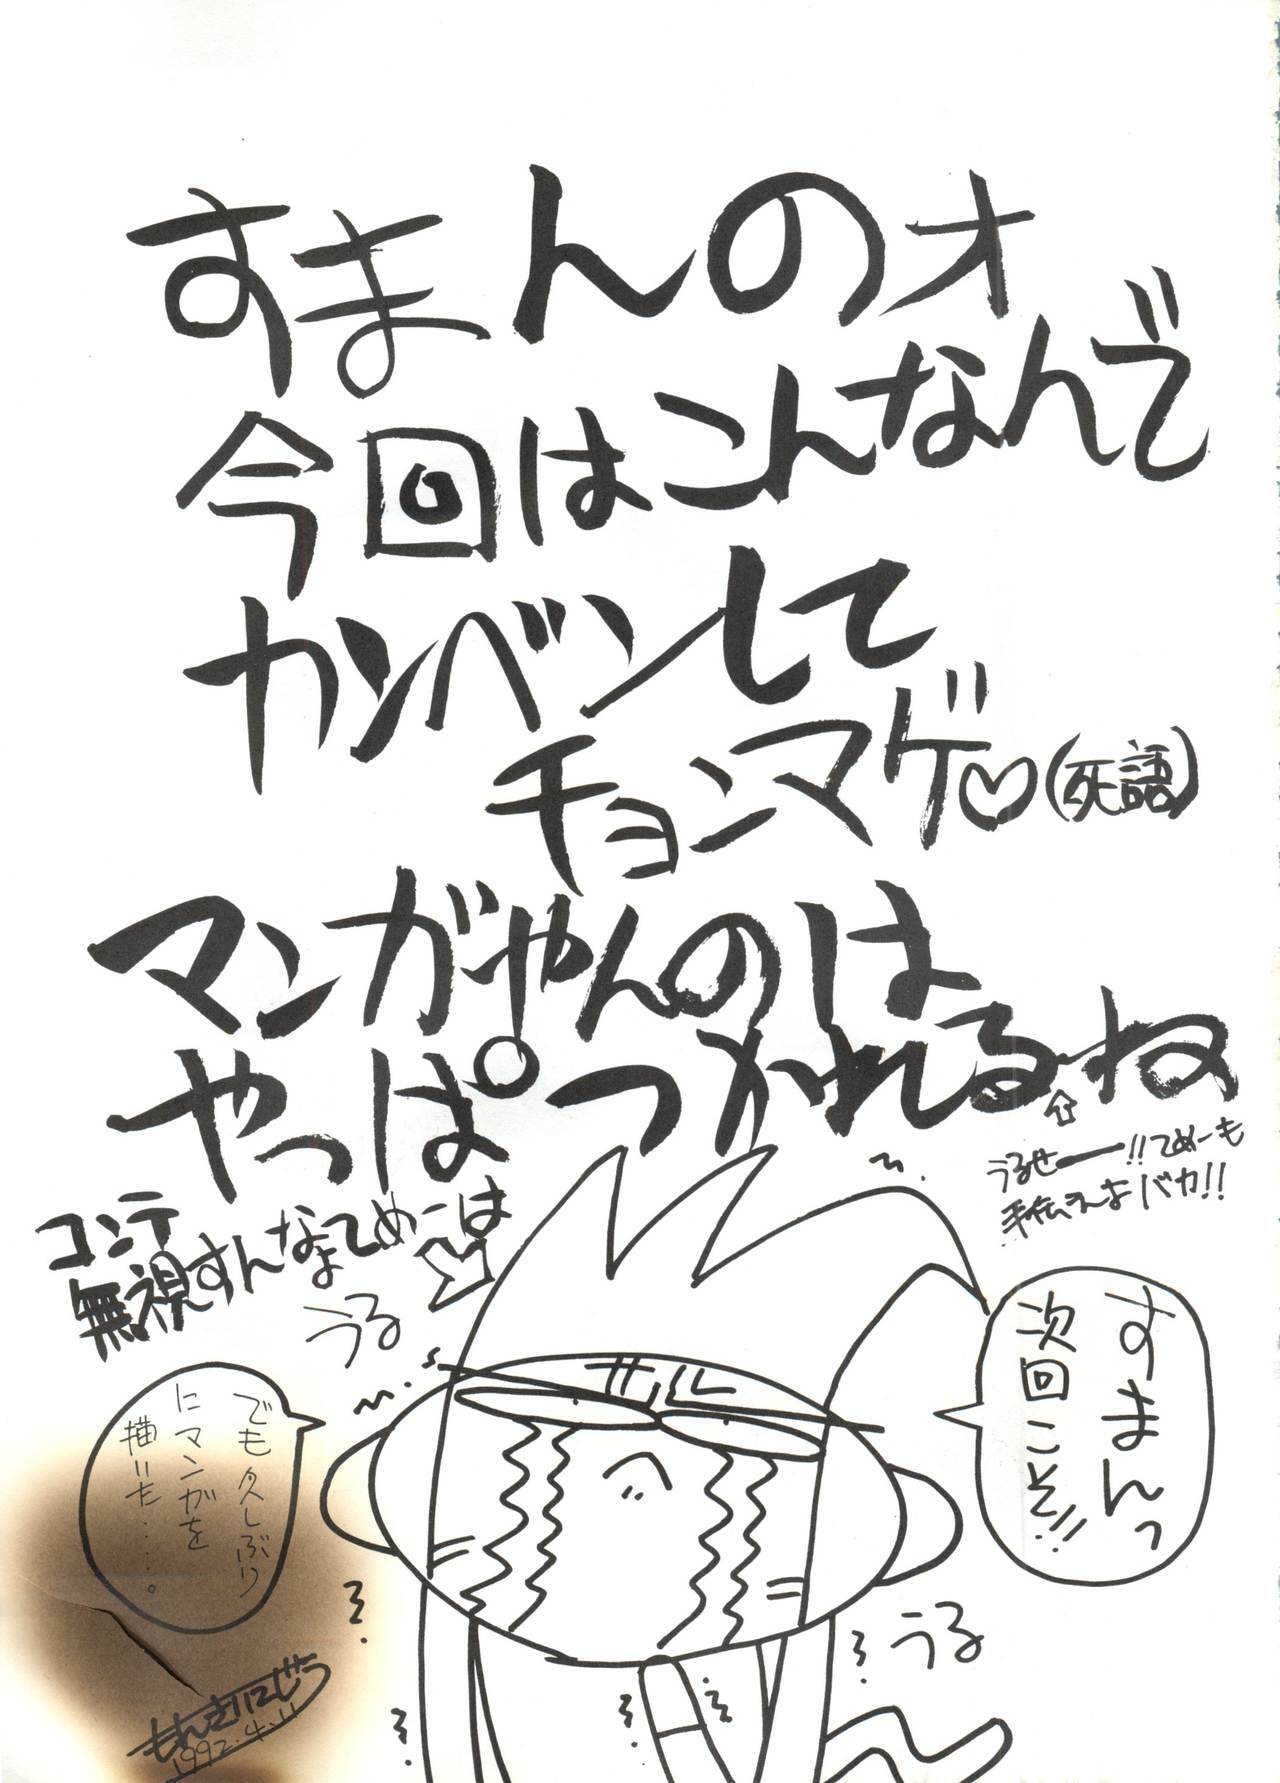 すまんのォ
今回はこんなんで
カンベンして
チョンマゲ♡(死語)
マンガやんのは
やっぱつかれるね
うるせー!!てめーも
手伝えよなバカ!!
コンテ
無視すんなよてめーは
うる
すまんっ
次回こそ!!
でも久しぶり
にマンガを
描いた・・・・。
うる
1992.4.11